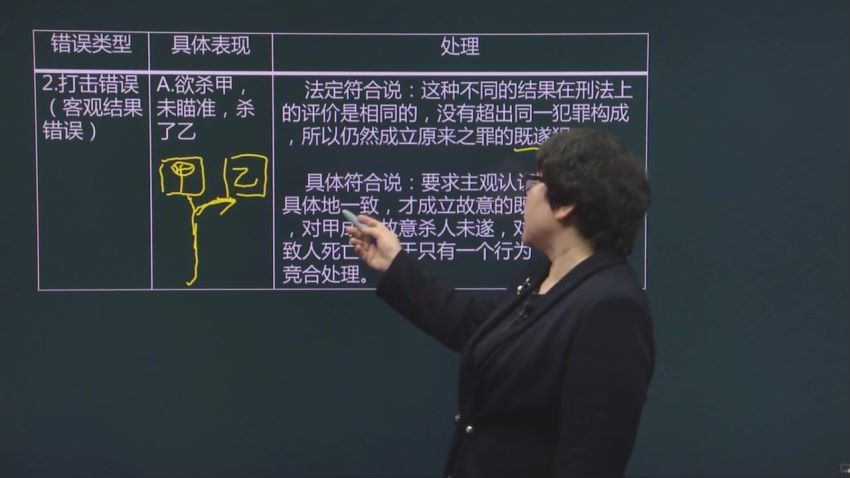 错误类型
具体表现
处理
2.打击错误
（客观结果
错误）
A.欲杀甲，
未瞄准，杀
了乙
甲
乙
法定符合说：这种不同的结果在刑法上
的评价是相同的，没有超出同一犯罪构成
，所以仍然成立原来之罪的既遂犯
具体符合说：要求主观认
具体地一致，才成立故意的既
，对甲成 故意杀人未遂，对
致人死亡 于只有一个行为
竞合处理。